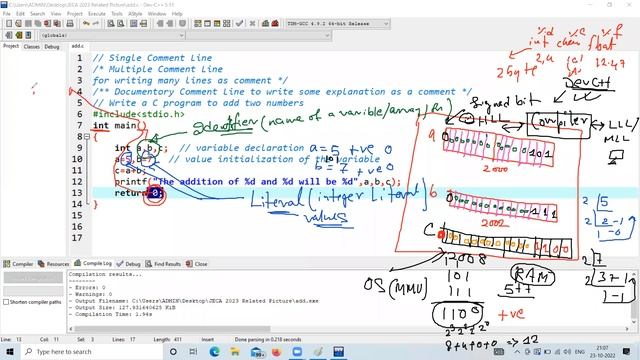 C:\Users\ADMIN\Desktop\JECA 2023 Related Picture\add.c - Dev-C++ 5.11
File Edit Search View Project Execute Tools AStyle Window Help
TDM-GCC 4.9.2 64-bit Release
(globals)
Project Classes Debug
add.c
1 // Single Comment Line
2 /* Multiple Comment Line
3 for writing many lines as comment */
4 /** Documentary Comment Line to write some explanation as a comment */
5 // Write a C program to add two numbers
6 #include<stdio.h>
7 int main()
8 {
9 int a,b,c; // variable declaration
10 a=5,b=7 // value initialization of the variable
11 c=a+b;
12 printf("The addition of %d and %d will be %d",a,b,c);
13 return 0;
14 }
15
16
17
Identifier (name of a variable/array/fn)
a = 5 +ve 0
101
b = 7 +ve 0
Literal (integer Literal)
values
%d %c %f
int char float
2, 4
12.47
25
Dev C++
Signed bit
HLL
Compiler
LLL/
MLL
a
101
2000
b
111
2002
C
1100
2008
OS (MMU)
101
111
1100
+ve
RAM
5+7
2³ 2² 2¹ 2⁰
8+4+0+0 => 12
2 5
2 2-1
1-0
2 7
2 3-1
1-1
Compiler Resources Compile Log Debug Find Results Close
Compilation results...
--------
- Errors: 0
- Warnings: 0
- Output Filename: C:\Users\ADMIN\Desktop\JECA 2023 Related Picture\add.exe
- Output Size: 127.931640625 KiB
- Compilation Time: 1.94s
Shorten compiler paths
Line: 13 Col: 11 Sel: 0 Lines: 17 Length: 411 Insert Done parsing in 0.218 seconds
Type here to search
99+
21:07
23-10-2022